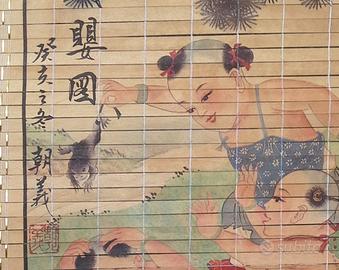 嬰圖
癸亥之冬 朝義
subito